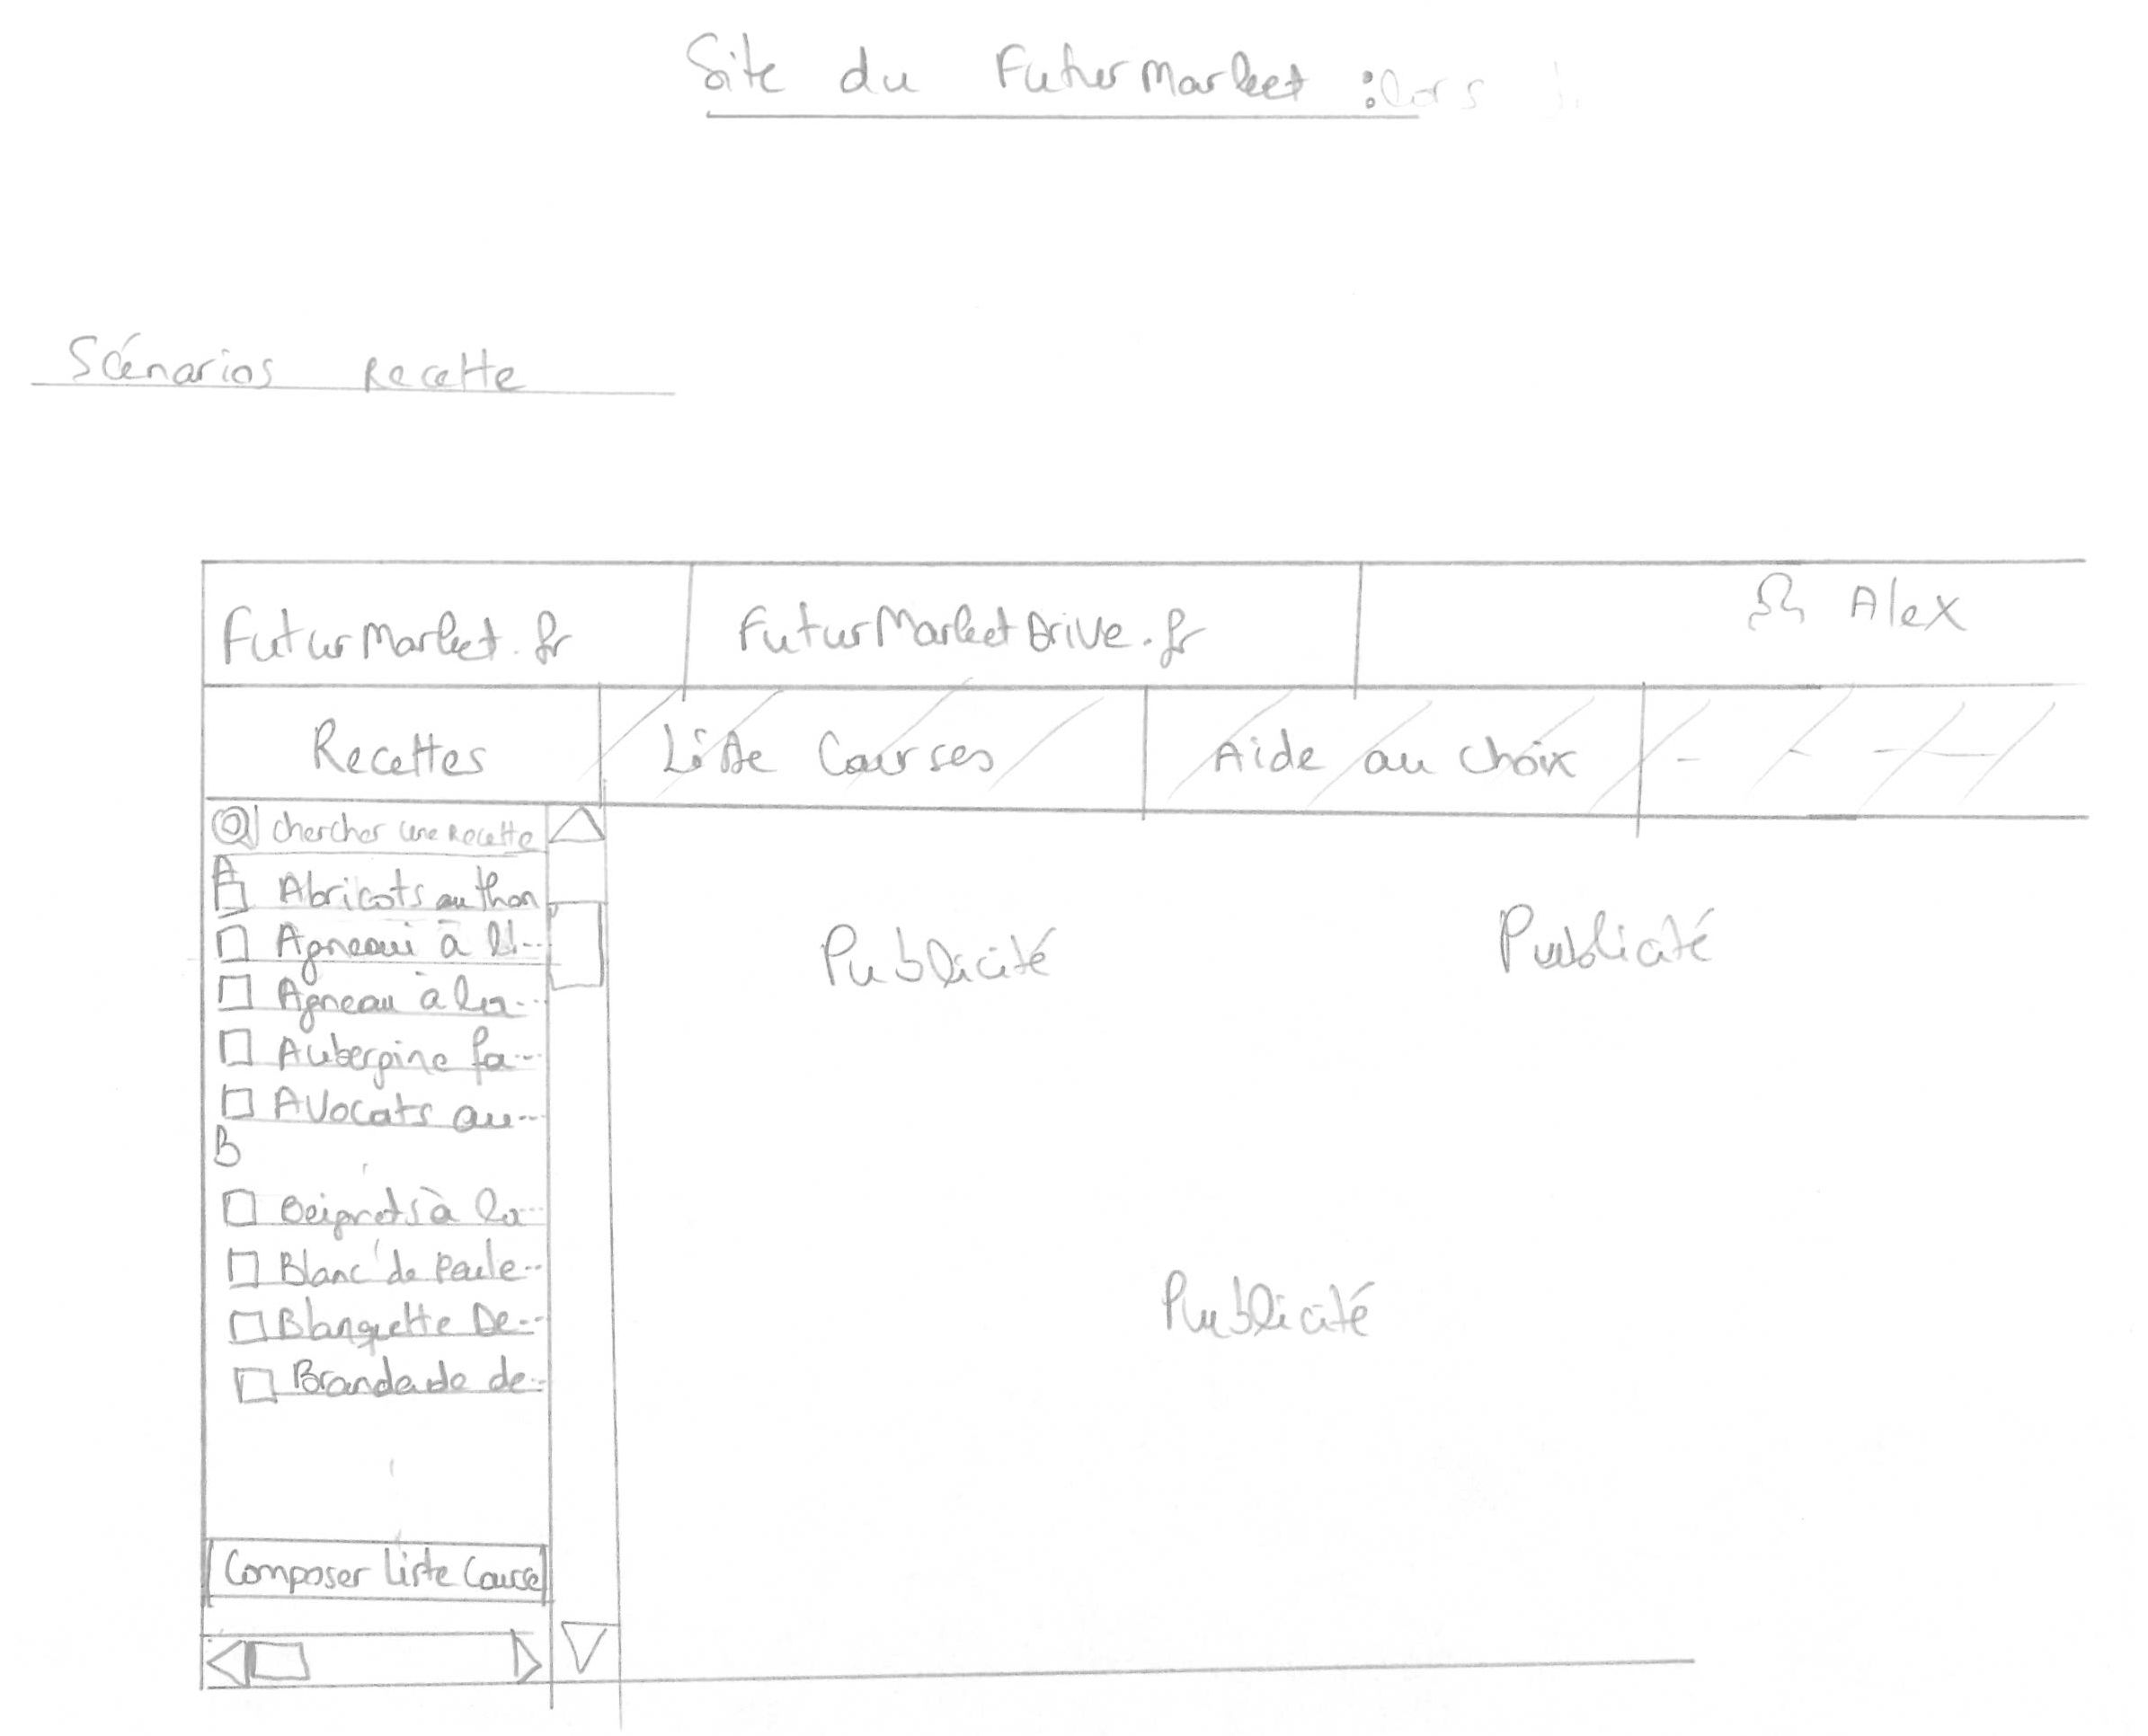 Site du FuturMarket :
Scénarios Recette
FuturMarket.fr FuturMarketDrive.fr Alex
Recettes Liste Courses Aide au choix
chercher une recette
A
Abricots au thon
Agneau à l'...
Agneau à la...
Aubergine fa...
Avocats au...
B
Beignets à la...
Blanc de Poule...
Blanquette De...
Brandade de..
Publicité Publicité
Publicité
Composer Liste Course